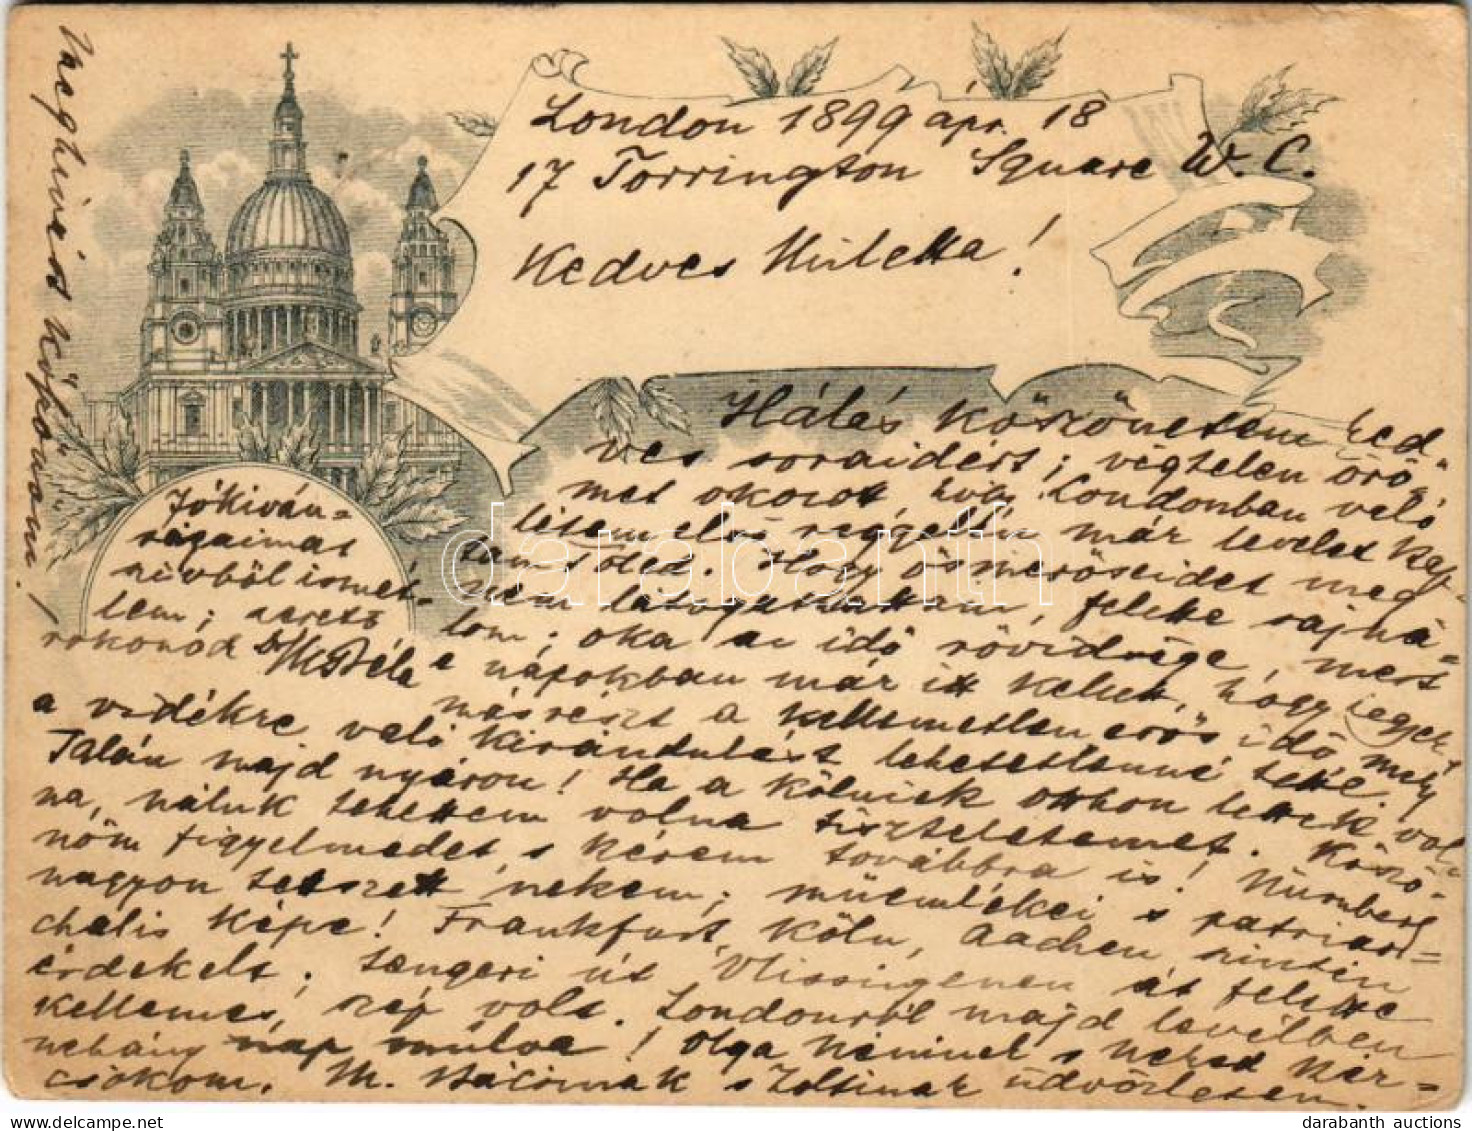 London 1899 ápr. 18
17 Torrington Square W. C.
Kedves
Hálás köszönetem ked
ves soraidért; végtelen örö„
met okozott hogy Londonban való
létem első reggelén már levelet kap„
tam Tőled. Hogy ösmerőseidet meg
nem látogathattam, felette sajná=
lom; oka az idő rövidsége, mert
e napokban már itt kellett, hogy legyek,
másrészt a kellemetlen esős idő, mely
a vidékre való kirándulást lehetetlenné tette.
Talán majd nyáron! Ha a kölniek otthon lettek vol„
na, náluk tettem volna tiszteletemet. Köszö„
nöm figyelmedet, s kérem továbbra is! Nürnberg
nagyon tetszett nekem; műemlékei s patriar=
chalis képe! Frankfurt, Köln, Aachen szintén
érdekelt; tengeri út Vlissingenen át felette
kellemes, szép volt. Londonról majd levélben
nehány nap mulva! Olga néninek s neked kéz=
csókom. M. s Zoltánnak üdvözletem.
Jókiván=
ságaimat
szivből ismét=
lem; szerető
rokonod Dr Béla
Meghivást köszönöm!
darabanth
darabanth auctions